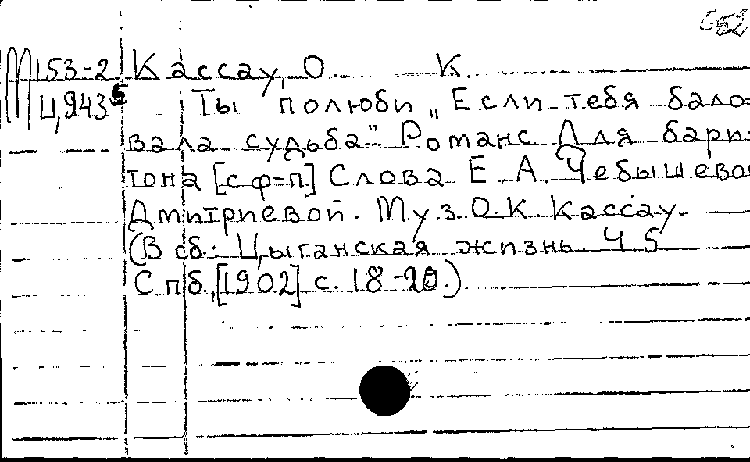 М153-2 Кассау, О. К.
Ц943 Ты полюби „Если тебя бало-
вала судьба" Романс Для бари-
тона [с ф-п] Слова Е. А. Чебышевой
Дмитриевой. Муз. О. К. Кассау.
(В сб: Цыганская жизнь Ч 5
Спб, [1902] с. 18-20.)